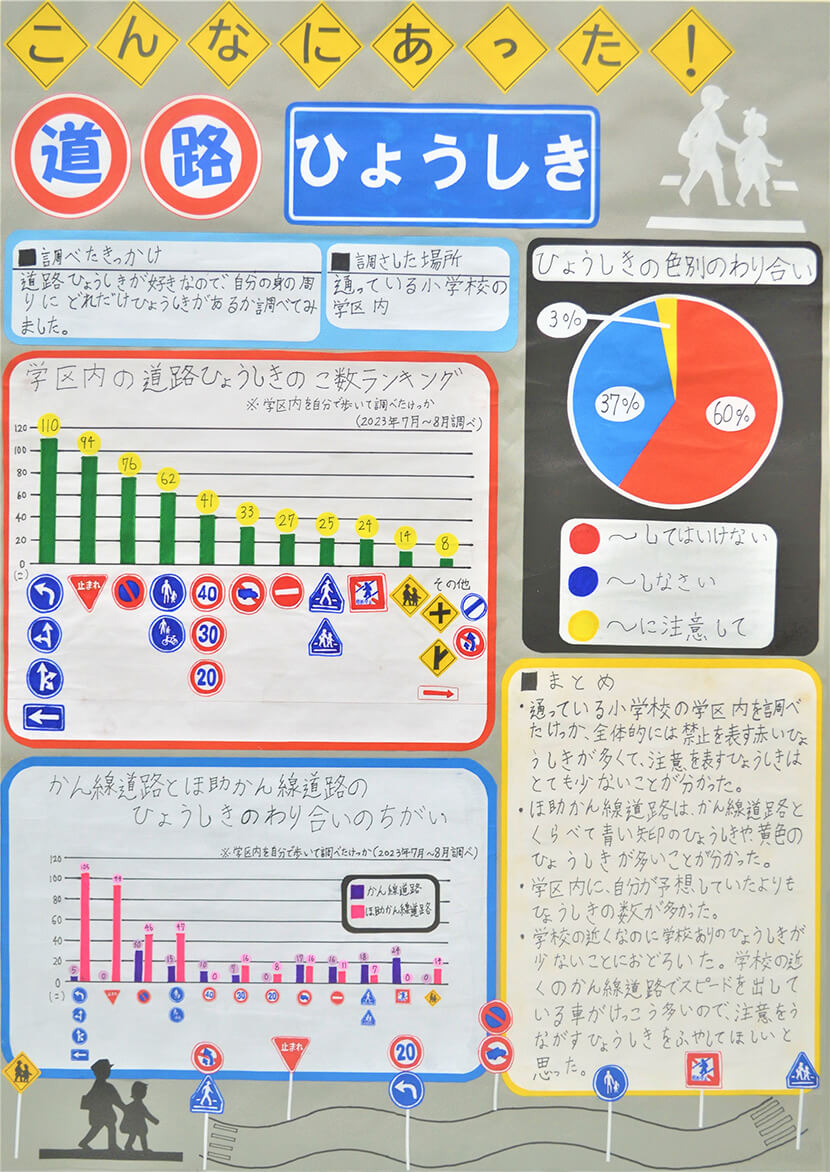 こんなにあった!
道路 ひょうしき
■調べたきっかけ
道路ひょうしきが好きなので、自分の身の周
りに どれだけひょうしきがあるか調べてみ
ました。
■調さした場所
通っている小学校の
学区内
ひょうしきの色別のわり合い
3%
37%
60%
〜してはいけない
〜しなさい
〜に注意して
学区内の道路ひょうしきのこ数ランキング
※学区内を自分で歩いて調べたけっか
(2023年7月〜8月調べ)
120
100
80
60
40
20
0
(こ)
110 94 76 62 41 33 27 25 24 14 8
止まれ
40
30
20
その他
かん線道路とほ助かん線道路の
ひょうしきのわり合いのちがい
※学区内を自分で歩いて調べたけっか(2023年7月〜8月調べ)
かん線道路
ほ助かん線道路
120
100
80
60
40
20
0
(こ)
5 105 0 94 30 46 15 47 10 0 7 16 0 8 17 16 16 11 18 7 24 0 0 14
40 30 20
■まとめ
・通っている小学校の学区内を調べ
たけっか、全体的には禁止を表す赤いひょ
うしきが多くて、注意を表すひょうしきは
とても少ないことが分かった。
・ほ助かん線道路は、かん線道路と
くらべて青い矢印のひょうしきや、黄色の
ひょうしきが多いことが分かった。
・学区内に、自分が予想していたよりも
ひょうしきの数が多かった。
・学校の近くなのに学校ありのひょうしきが
少ないことにおどろいた。学校の近
くのかん線道路でスピードを出して
いる車がけっこう多いので、注意をう
ながすひょうしきをふやしてほしいと
思った。
止まれ
20